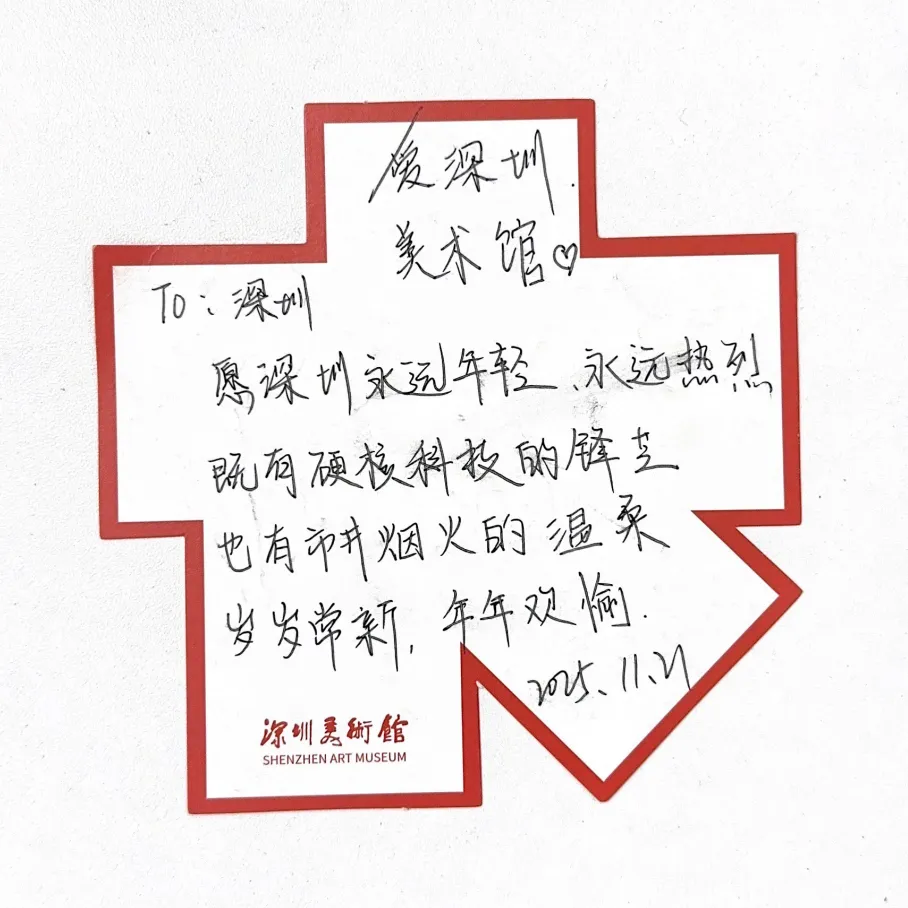 爱深圳
美术馆♡
To：深圳
愿深圳永远年轻、永远热烈
既有硬核科技的锋芒
也有市井烟火的温柔
岁岁常新，年年欢愉.
2025.11.21
深圳美術館
SHENZHEN ART MUSEUM